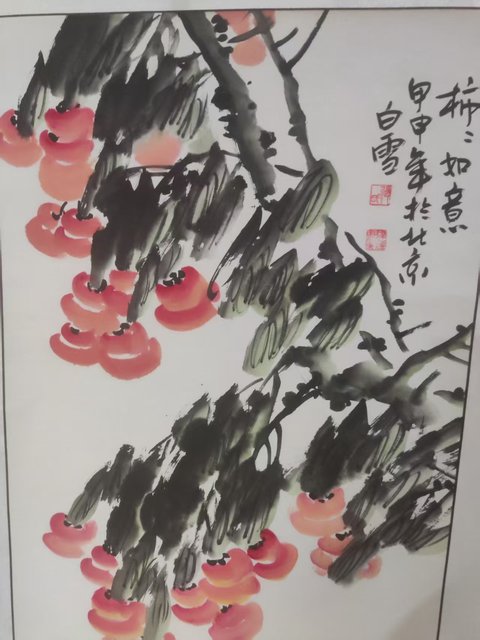 柿〻如意
甲申年於北京
白雪